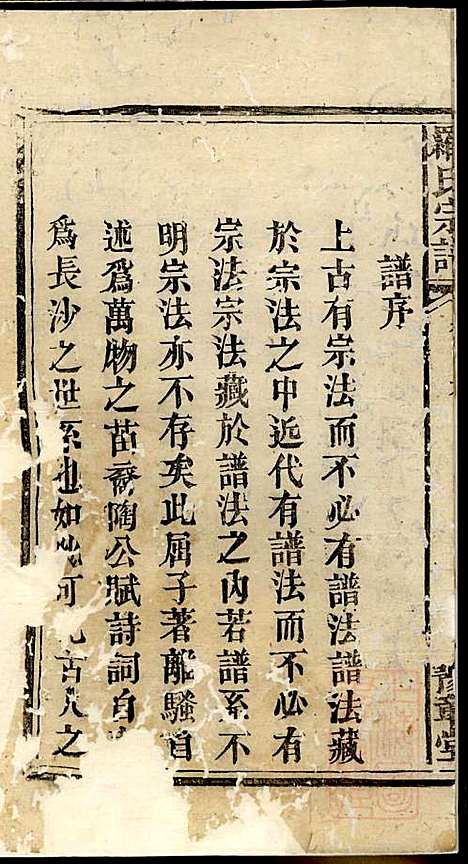 羅氏宗譜
豫章堂
譜序
上古有宗法而不必有譜法譜法藏
於宗法之中近代有譜法而不必有
宗法宗法藏於譜法之內若譜系不
明宗法亦不存矣此屈子著離騷自
述爲萬物之苗裔陶公賦詩詞自
爲長沙之世系也如此可見古人之